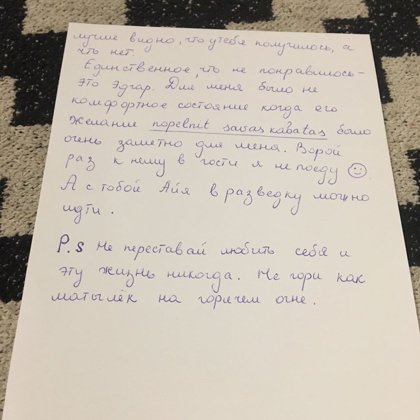 лучше видно, что у тебя получилось, а
что нет.
Единственное, что не понравилось -
это Эдгар. Для меня было не
комфортное состояние когда его
желание nopelnit savas kabatas было
очень заметно для меня. Второй
раз к нему в гости я не поеду
А с тобой Айя в разведку можно
идти.
P.s Не переставай любить себя и
эту жизнь никогда. Не гори как
матылёк на горячем огне.